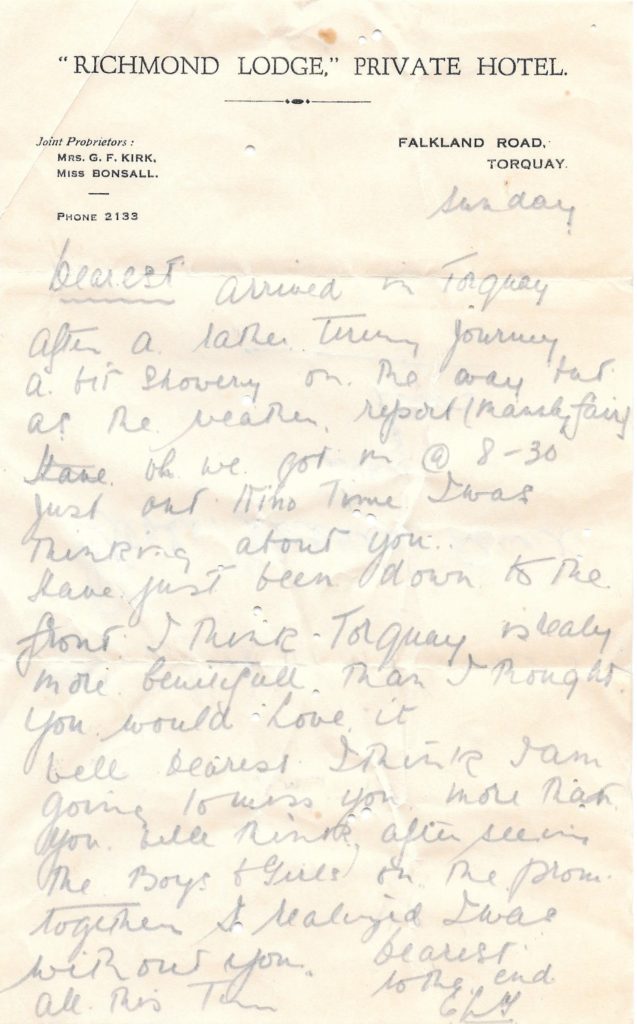 "RICHMOND LODGE," PRIVATE HOTEL.
Joint Proprietors :
MRS. G. F. KIRK,
MISS BONSALL.
PHONE 2133
FALKLAND ROAD,
TORQUAY.
Sunday
Dearest arrived in Torquay
after a rather Journey
a bit showery on the way but
as the weather report (mainly fair)
oh we got in @ 8-30
Just our Time I was
thinking about you..
Have just been down to the
front I think Torquay is
more than I thought
you would love it
Well Dearest I think I am
going to miss you more than
you think after seeing
the Boys & Girls on the prom
together I realized I was
without you. Dearest
to the end
all this